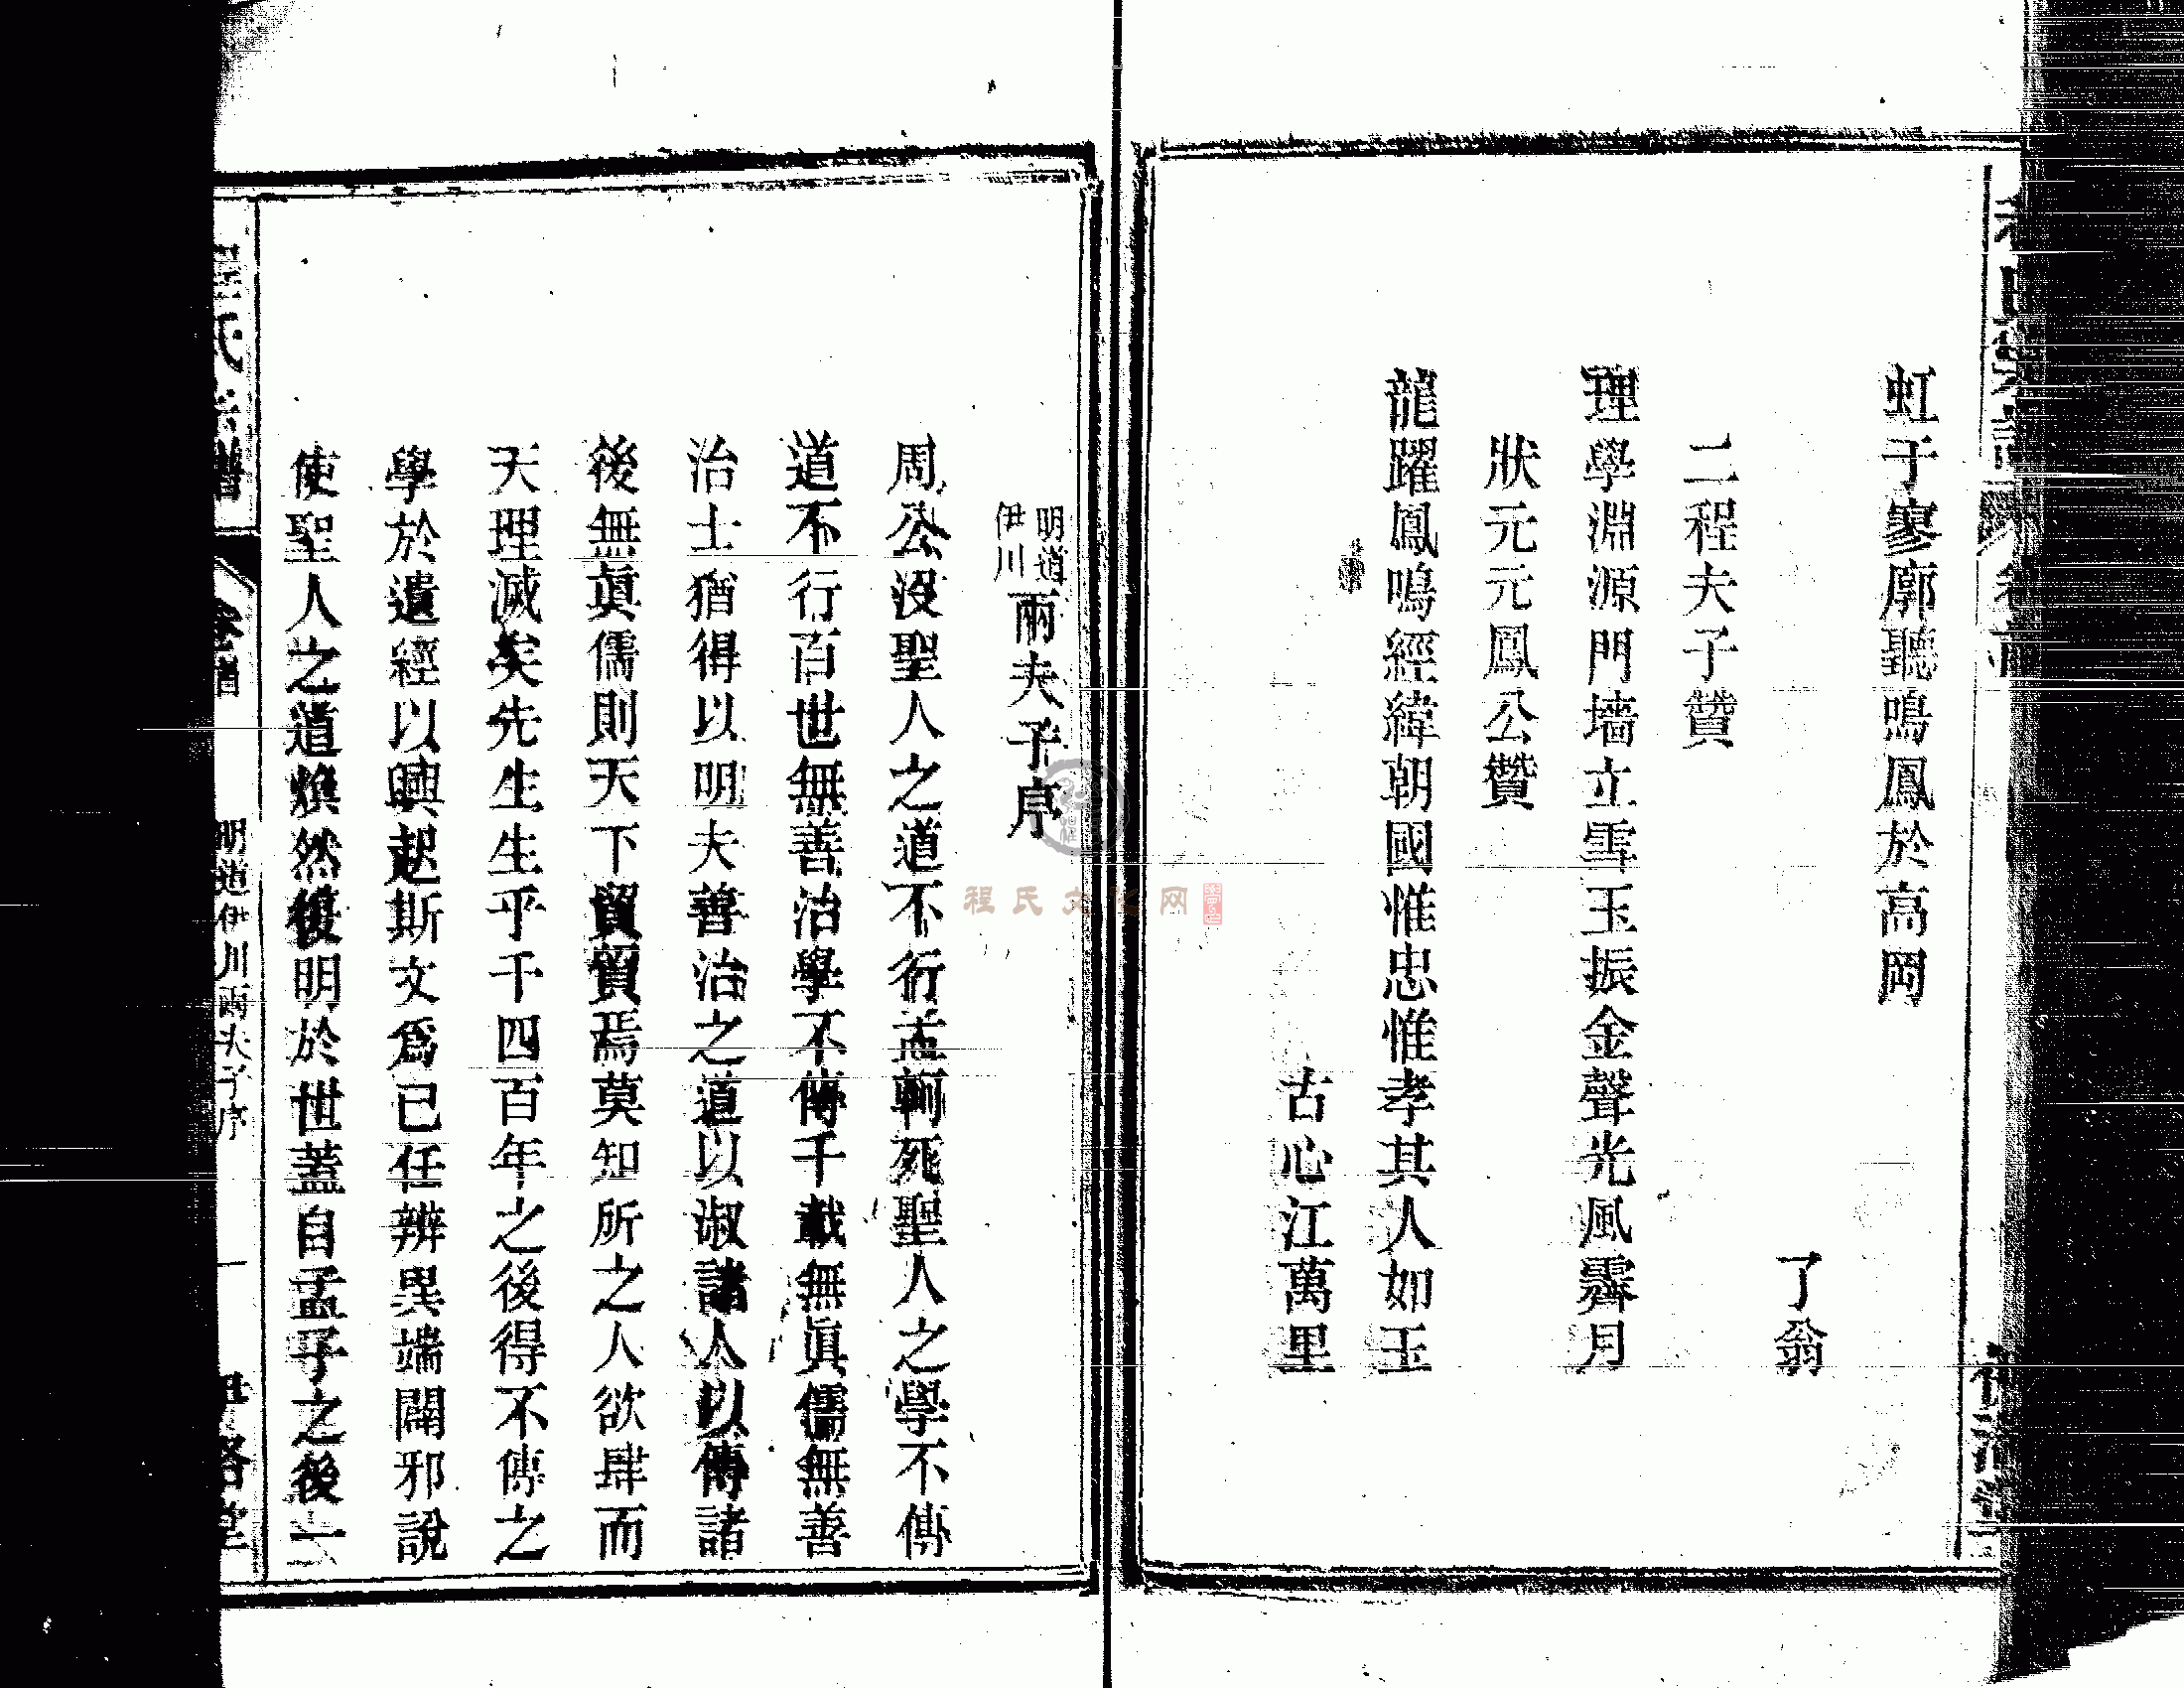 虹于寥廓聽鳴鳳於高岡
了翁
二程夫子贊
理學淵源門墻立雪玉振金聲光風霽月
狀元元鳳公贊
龍躍鳳鳴經緯朝國惟忠惟孝其人如玉
古心江萬里
明道
伊川
兩夫子序
周公沒聖人之道不行孟軻死聖人之學不傳
道不行百世無善治學不傳千載無眞儒無善
治士猶得以明夫善治之道以淑諸人以傳諸
後無眞儒則天下貿貿焉莫知所之人欲肆而
天理滅矣先生生乎千四百年之後得不傳之
學於遺經以興起斯文爲己任辨異端闢邪說
使聖人之道煥然復明於世蓋自孟子之後一
程氏宗譜
卷首
明道伊川兩夫子序
一
伊洛堂
程氏文化网